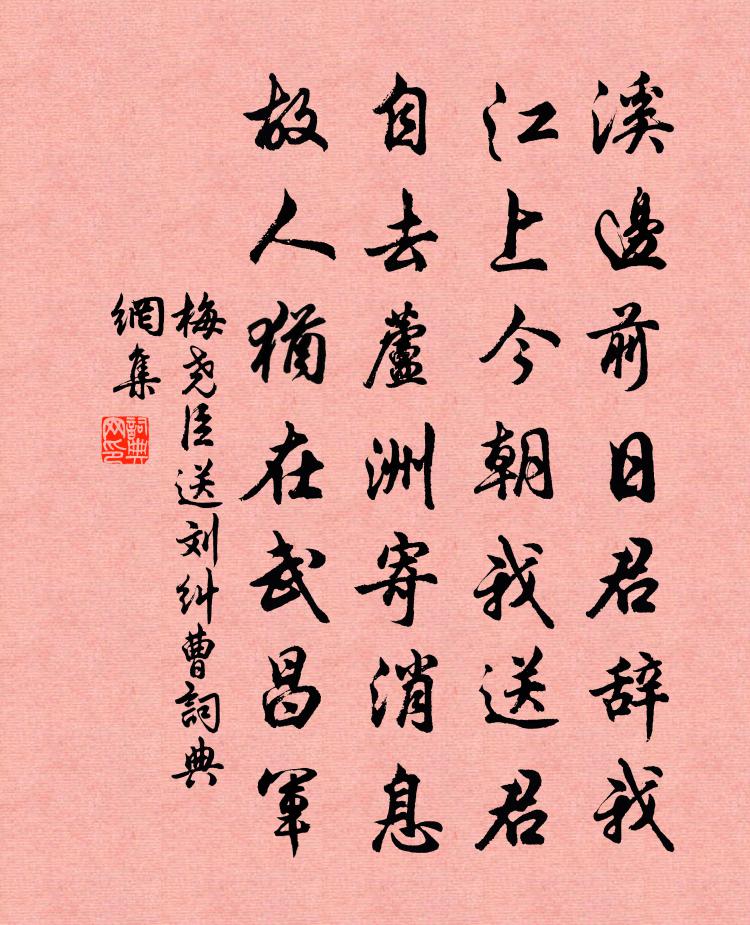 溪邊前日君辞我
江上今朝我送君
自去蘆洲寄消息
故人猶在武昌軍
梅尧臣送刘纠曹詞典
網集
詞典
网印